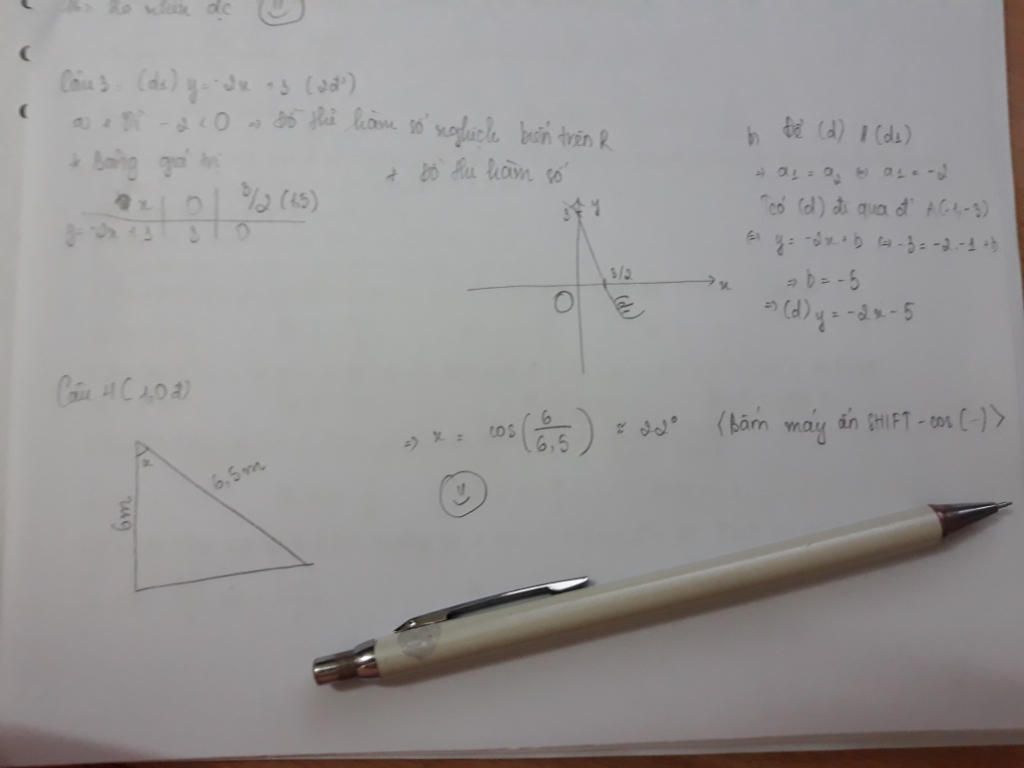 Câu 3 : (d1) y = -2x + 3 (2đ)
a) + Vì -2 < 0 => Đồ thị hàm số nghịch biến trên R
+ Bảng giá trị
x | 0 | 3/2 (1,5)
y = -2x + 3 | 3 | 0
+ Đồ thị hàm số
3 y
3/2
O x
b) Để (d) // (d1)
=> a1 = a2 <=> a1 = -2
có (d) đi qua đ' A(-1,-3)
<=> y = -2x + b <=> -3 = -2.-1 + b
=> b = -5
=> (d) y = -2x - 5
Câu 4 (1,0đ)
x
6m
6,5m
=> x = cos(6/6,5) ≈ 22° <Bấm máy ấn SHIFT - cos (-)>